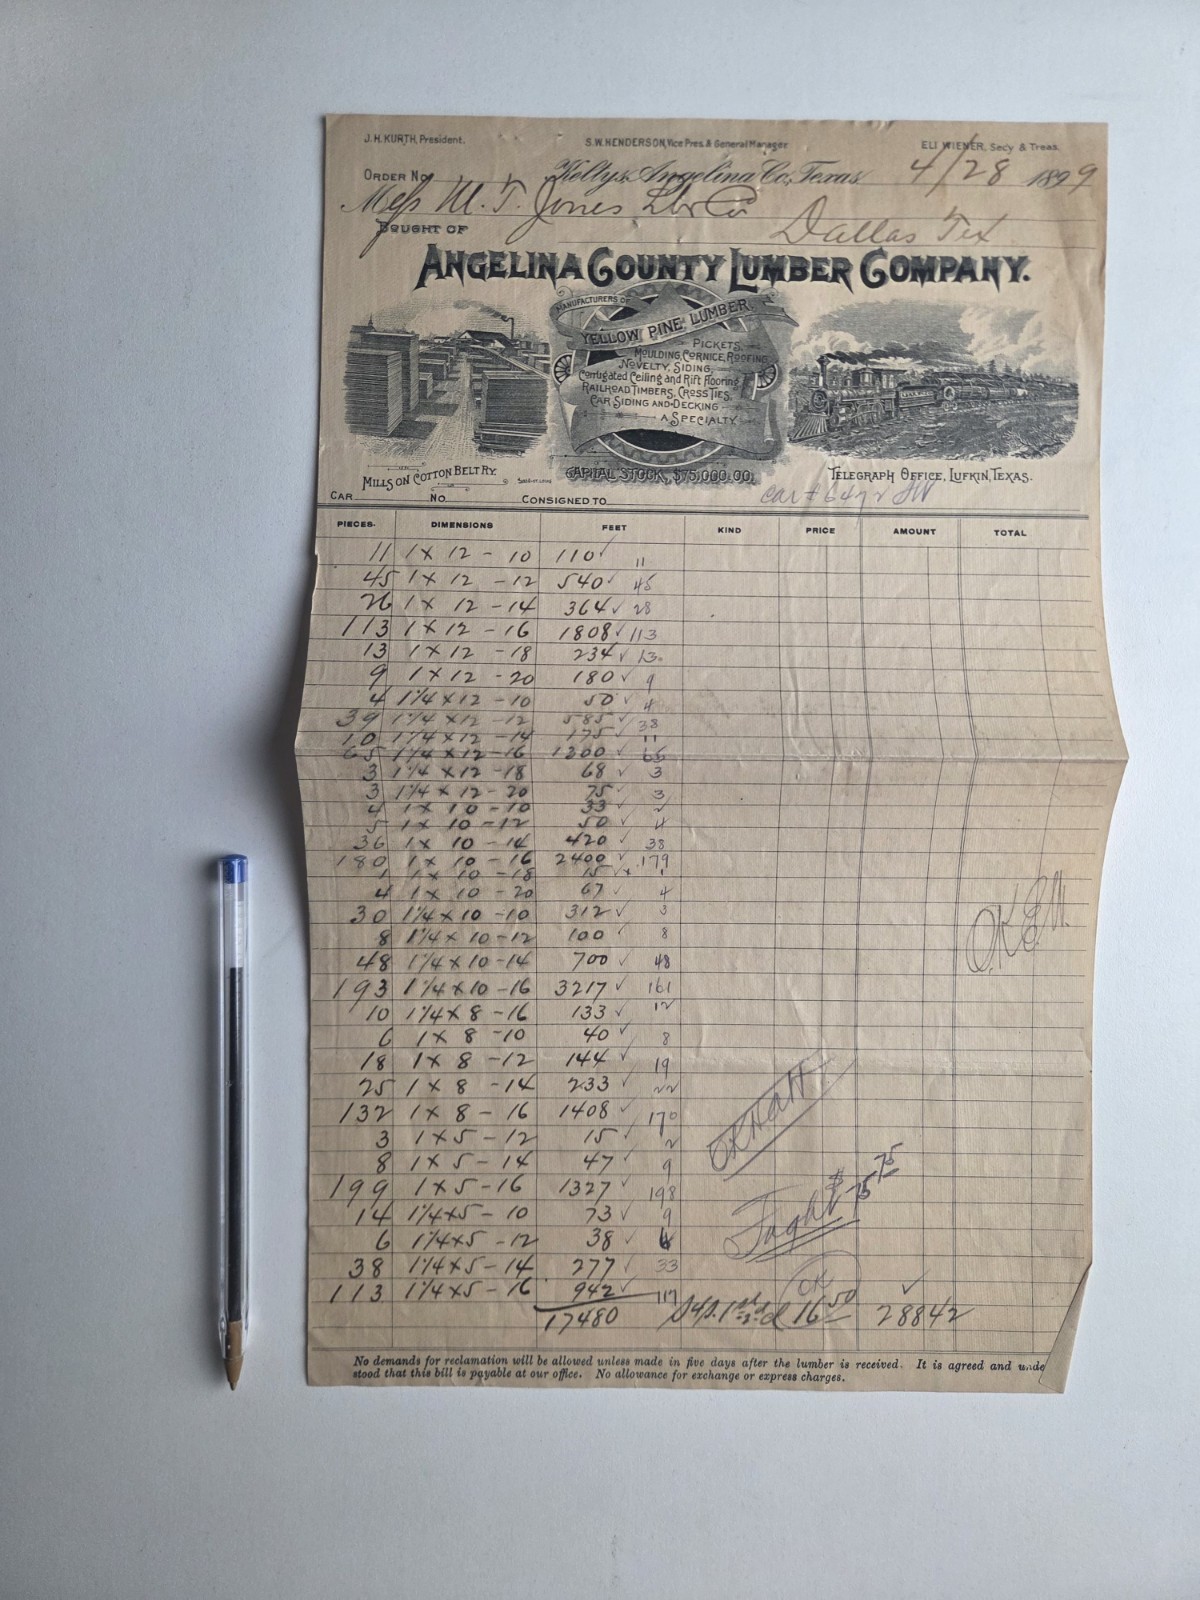 J. H. KURTH, President. S. W. HENDERSON, Vice Pres. & General Manager ELI WIENER, Secy & Treas.
ORDER No Keltys, Angelina Co., Texas 4/28 1899
Mess M. T. Jones Lbr Co
BOUGHT OF Dallas Tex
ANGELINA COUNTY LUMBER COMPANY.
MANUFACTURERS OF
YELLOW PINE LUMBER,
PICKETS,
MOULDING, CORNICE, ROOFING
NOVELTY, SIDING,
Corrugated Ceiling and Rift Flooring
RAILROAD TIMBERS, CROSS TIES,
CAR SIDING AND DECKING
A SPECIALTY.
MILLS ON COTTON BELT RY. CAPITAL STOCK, $75,000.00. TELEGRAPH OFFICE, LUFKIN, TEXAS.
CAR No. CONSIGNED TO car #
PIECES. DIMENSIONS FEET KIND PRICE AMOUNT TOTAL
11 1 x 12 - 10 110 ✓ 11
45 1 x 12 - 12 540 ✓ 45
26 1 x 12 - 14 364 ✓ 28
113 1 x 12 - 16 1808 ✓ 113
13 1 x 12 - 18 234 ✓ 13
9 1 x 12 - 20 180 ✓ 9
4 1 1/4 x 12 - 10 50 ✓ 4
39 1 1/4 x 12 - 12 585 ✓ 38
10 1 1/4 x 12 - 14 175 ✓ 11
65 1 1/4 x 12 - 16 1300 ✓ 65
3 1 1/4 x 12 - 18 68 ✓ 3
3 1 1/4 x 12 - 20 75 ✓ 3
4 1 x 10 - 10 33 ✓ 2
5 1 x 10 - 12 50 ✓ 4
36 1 x 10 - 14 420 ✓ 38
180 1 x 10 - 16 2400 ✓ 179
1 1 x 10 - 18 15 ✓ x 1
4 1 x 10 - 20 67 ✓ 4
30 1 1/4 x 10 - 10 312 ✓ 3
8 1 1/4 x 10 - 12 100 ✓ 8
48 1 1/4 x 10 - 14 700 ✓ 48
193 1 1/4 x 10 - 16 3217 ✓ 161
10 1 1/4 x 8 - 16 133 ✓ 12
6 1 x 8 - 10 40 ✓ 8
18 1 x 8 - 12 144 ✓ 19
25 1 x 8 - 14 233 ✓ 22
132 1 x 8 - 16 1408 ✓ 170
3 1 x 5 - 12 15 ✓ 2
8 1 x 5 - 14 47 ✓ 9
199 1 x 5 - 16 1327 ✓ 198
14 1 1/4 x 5 - 10 73 ✓ 9
6 1 1/4 x 5 - 12 38 ✓ 6
38 1 1/4 x 5 - 14 277 ✓ 33
113 1 1/4 x 5 - 16 942 ✓ 117
17480 1st 2nd 16 50 28842
O.K.
$ 75 75
OK
No demands for reclamation will be allowed unless made in five days after the lumber is received. It is agreed and unde
stood that this bill is payable at our office. No allowance for exchange or express charges.